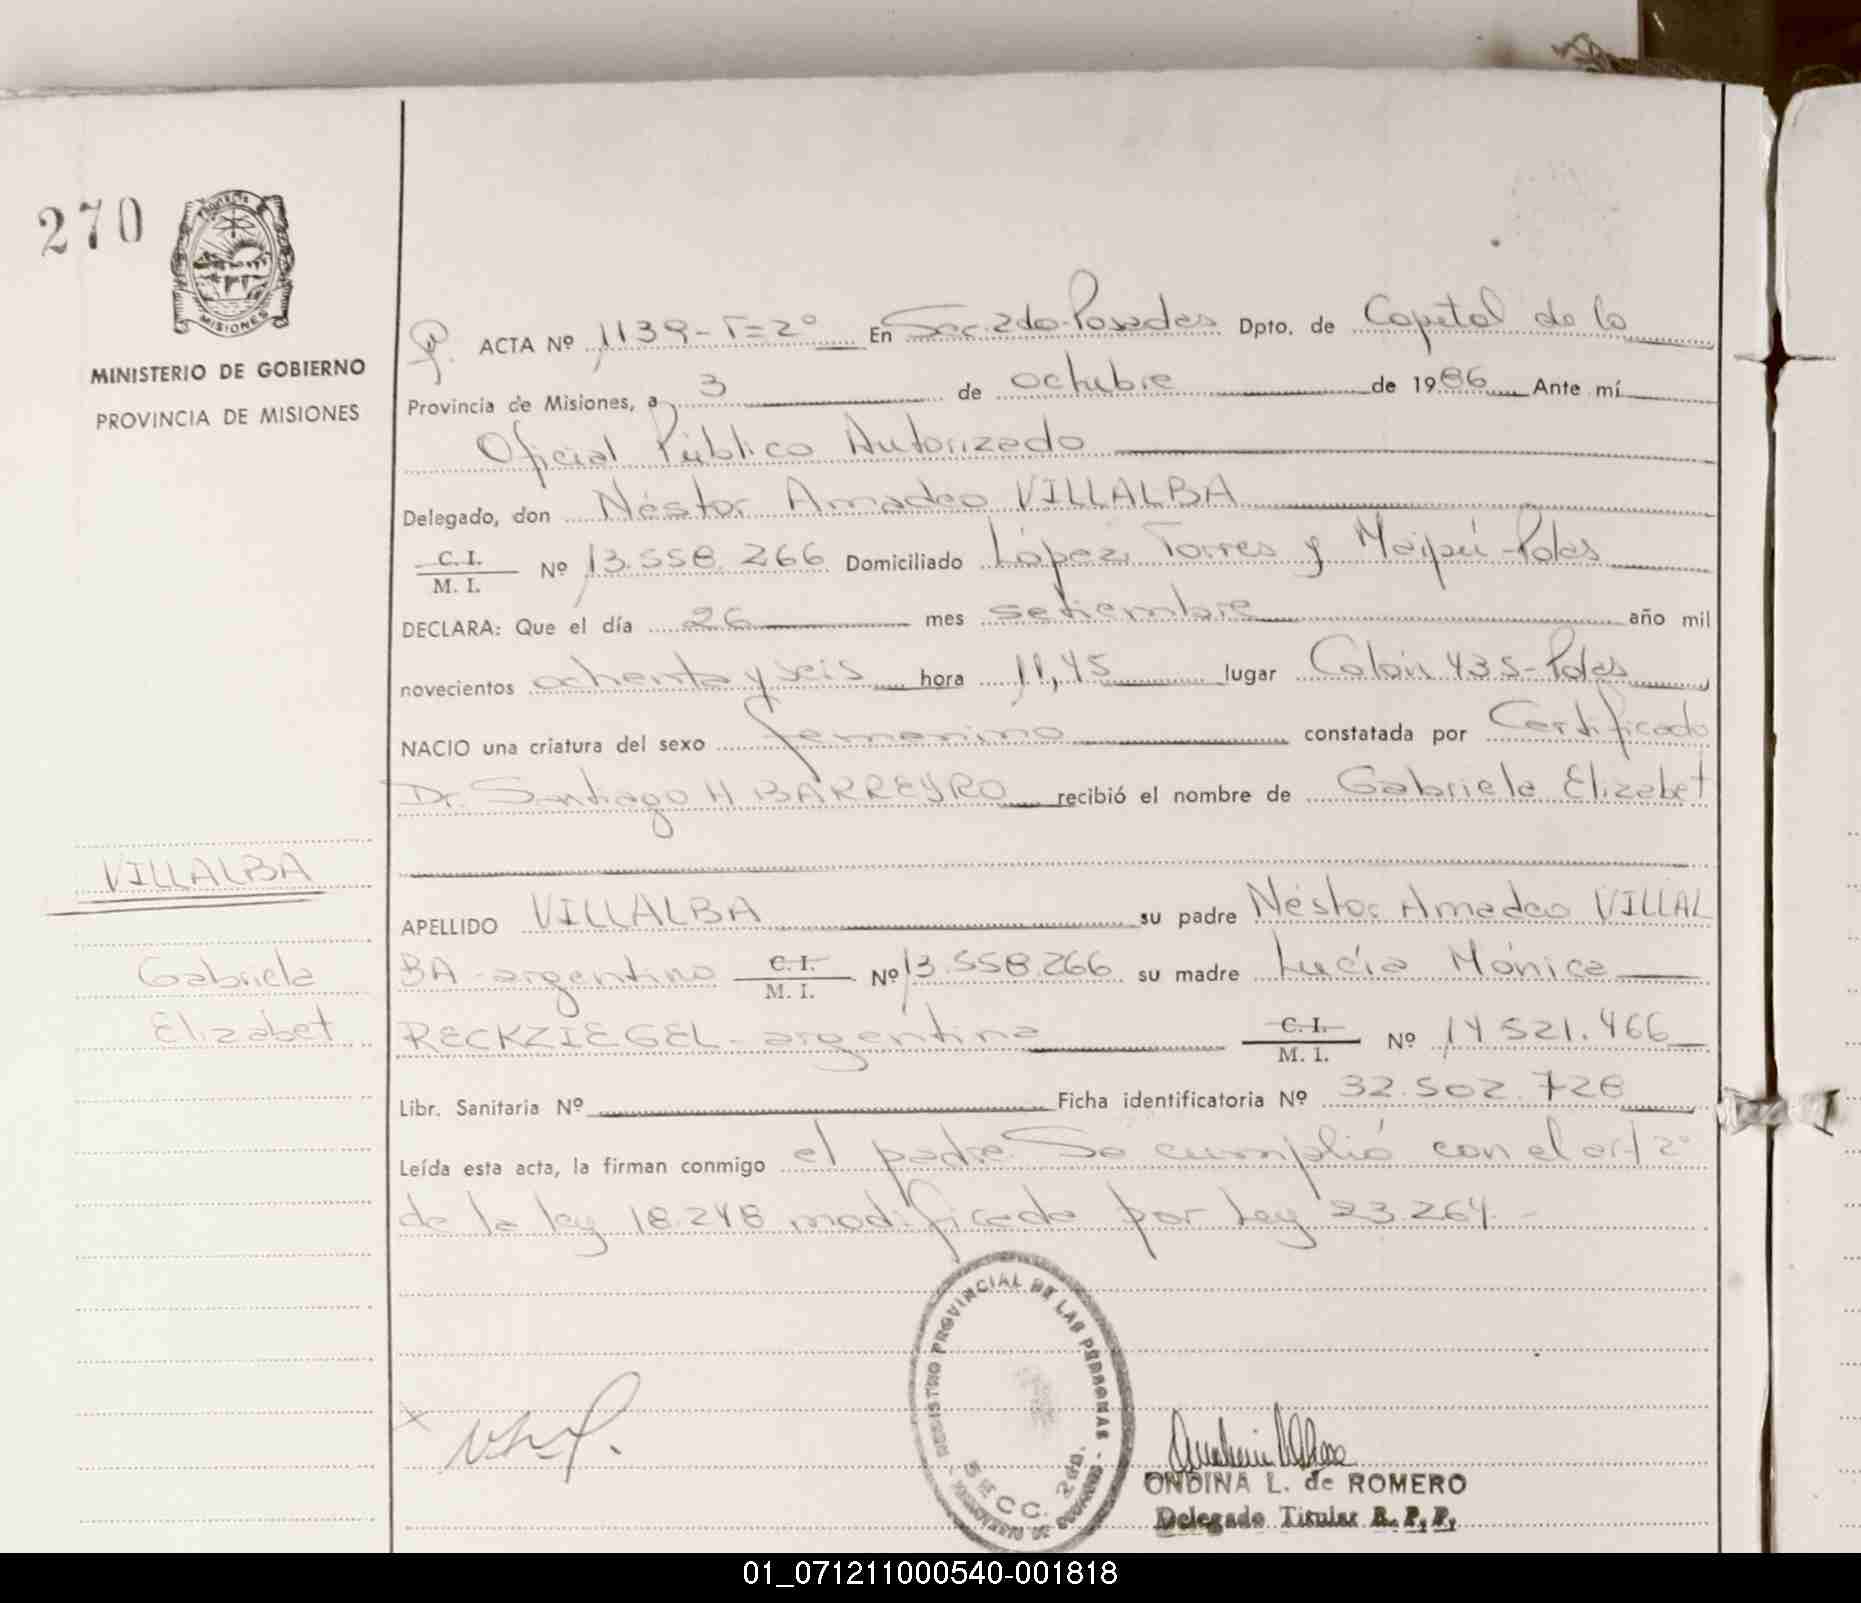 270
PROVINCIA
MISIONES
MINISTERIO DE GOBIERNO
PROVINCIA DE MISIONES
ACTA Nº 1139-T=2º En Sec. 2da-Posadas Dpto. de Capital de la
Provincia de Misiones, a 3 de octubre de 1986 Ante mí
Oficial Público Autorizado
Delegado, don Néstor Amadeo VILLALBA
C. I.
M. I. Nº 13.558.266 Domiciliado López Torres y Maipú-Pdas
DECLARA: Que el día 26 mes setiembre año mil
novecientos ochenta y seis hora 11,45 lugar Colón 435-Pdas
NACIO una criatura del sexo femenino constatada por Certificado
Dr. Santiago H BARREYRO recibió el nombre de Gabriela Elizabet
VILLALBA
Gabriela
Elizabet
APELLIDO VILLALBA su padre Néstor Amadeo VILLAL
BA-argentino C. I. M. I. Nº 13.558.266 su madre Lucía Mónica
RECKZIEGEL-argentina C. I. M. I. Nº 14.521.466
Libr. Sanitaria Nº Ficha identificatoria Nº 32.502.728
Leída esta acta, la firman conmigo el padre. Se cumplió con el art 2º
de la ley 18.248 modificada por Ley 23.264.-
REGISTRO PROVINCIAL DE LAS PERSONAS
SECC. 2da.
ONDINA L. de ROMERO
Delegado Titular R. P. P.
01_071211000540-001818